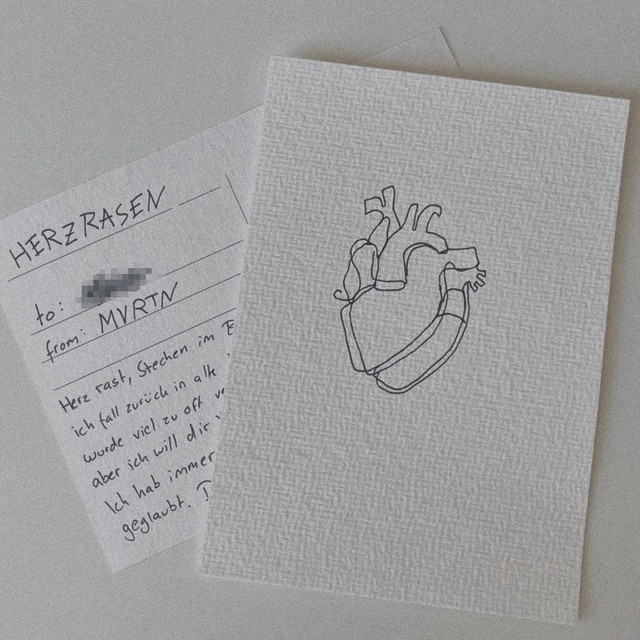 HERZRASEN
to:
from: MVRTN
Herz rast, Stechen im
ich fall zurück in alte
wurde viel zu oft
aber ich will dir
Ich hab immer
geglaubt.